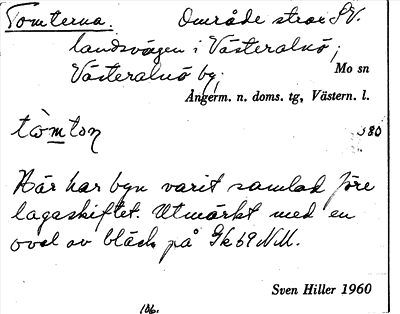 Tomterna. Område strax SV.
landsvägen i Västeralnö,
Västeralnö by.
Mo sn
Ångerm. n. doms. tg, Västern. l.
tòmton
380
Här har byn varit samlad före
lagaskiftet. Utmärkt med en
oval av bläck på Gk 69 NM.
Sven Hiller 1960
106.